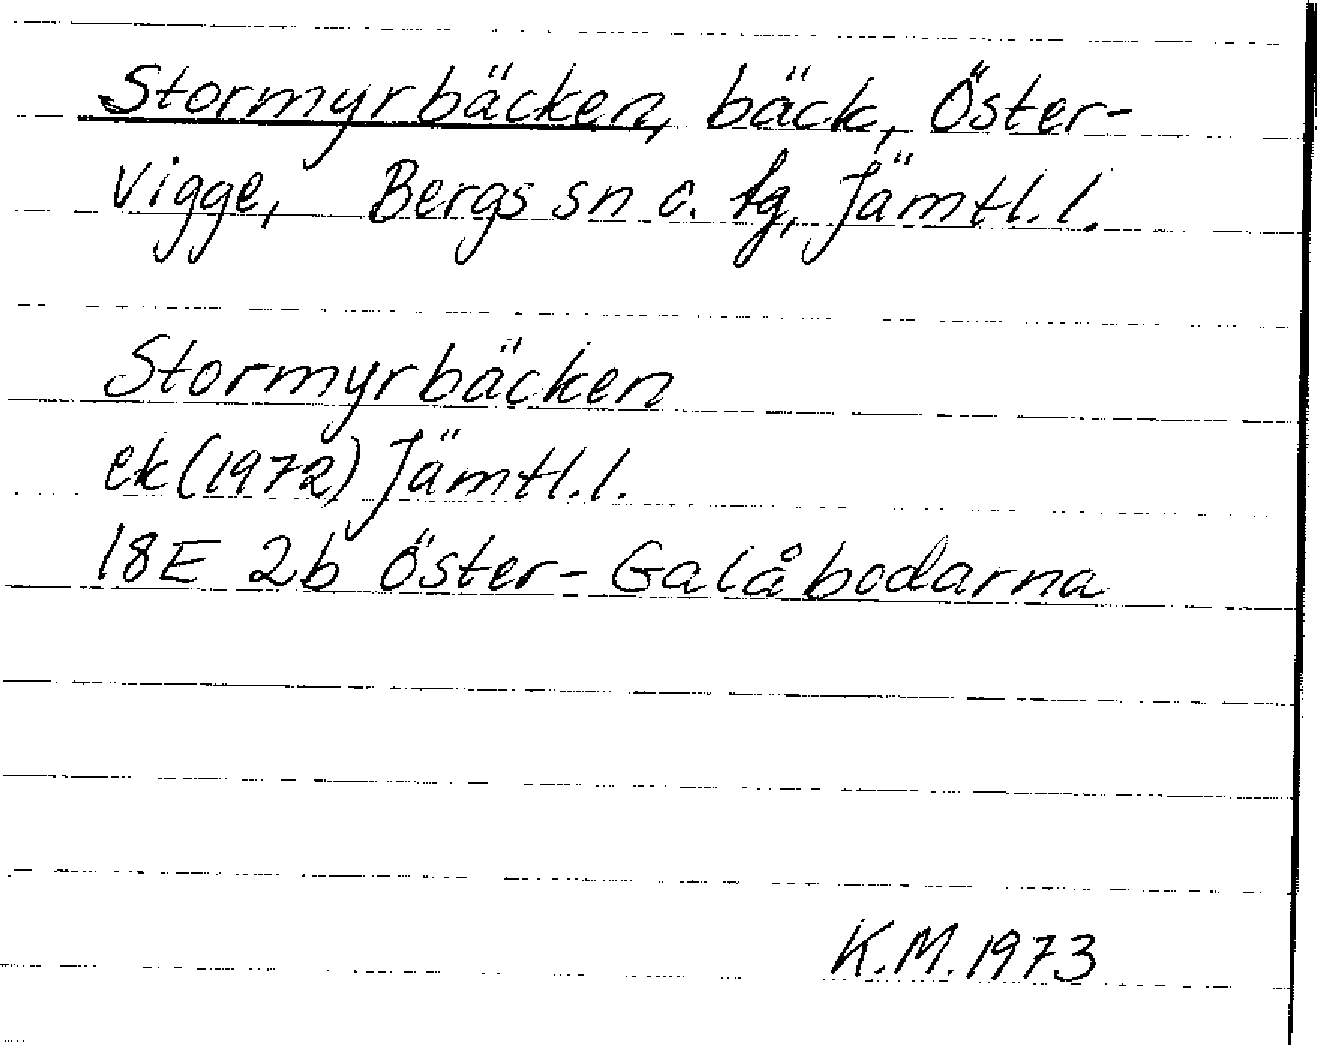 Stormyrbäcken, bäck, Öster-
vigge, Bergs sn o. tg, Jämtl. l.
Stormyrbäcken
ek (1972) Jämtl. l.
18E 2b Öster-Galåbodarna
K.M. 1973